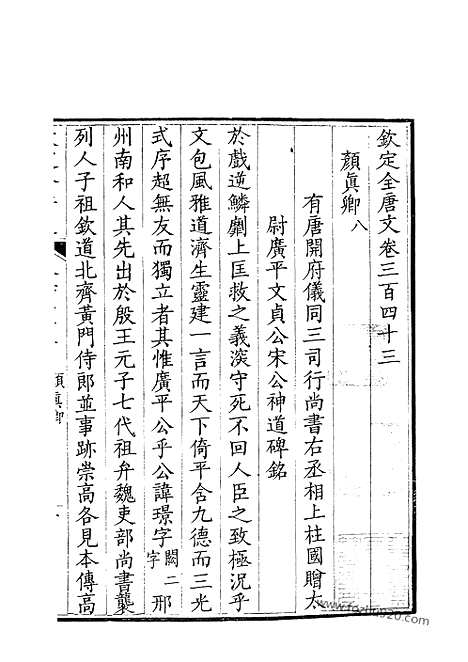 欽定全唐文卷三百四十三
顏眞卿八
有唐開府儀同三司行尚書右丞相上柱國贈太
尉廣平文貞公宋公神道碑銘
於戲逆鱗劘上匡救之義深守死不回人臣之致極況乎
文包風雅道濟生靈建一言而天下倚平含九德而三光
式序超無友而獨立者其惟廣平公乎公諱璟字闕二字邢
州南和人其先出於殷王元子七代祖弁魏吏部尚書襲
列人子祖欽道北齊黃門侍郎並事跡崇高各見本傳高
顏眞卿
www.fozhu920.com